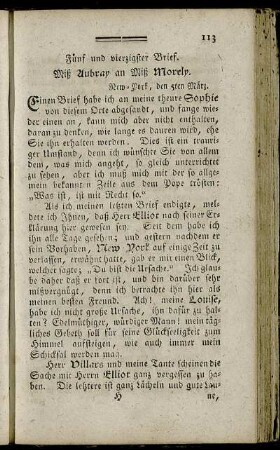 113
Fünf und vierzigster Brief.
Miß Aubray an Miß Morely.
New-York, den 5ten März.
Einen Brief habe ich an meine theure Sophie
von diesem Orte abgesandt, und fange wie-
der einen an, kann mich aber nicht enthalten,
daran zu denken, wie lange es dauren wird, ehe
Sie ihn erhalten werden. Dies ist ein trauri-
ger Umstand, denn ich wünschte Sie von allem
dem, was mich angeht, so gleich unterrichtet
zu sehen, aber ich muß mich mit der so allge-
mein bekannten Zeile aus dem Pope trösten:
„Was ist, ist mit Recht so.“
Als ich meinen letzten Brief endigte, melde-
te ich Ihnen, daß Herr Elliot nach seiner Er-
klärung hier gewesen sey. Seit dem habe ich
ihn alle Tage gesehen; und gestern nachdem er
sein Vorhaben, New York auf einige Zeit zu
verlassen, erwähnt hatte, gab er mir einen Blick,
welcher sagte: „Du bist die Ursache.“ Ich glau-
be daher daß er fort ist, und bin darüber sehr
mißvergnügt, denn ich betrachte ihn hier als
meinen besten Freund. Ach! meine Louise,
habe ich nicht große Ursache, ihn dafür zu hal-
ten? Edelmüthiger, würdiger Mann! mein täg-
liches Gebeth soll für seine Glückseligkeit zum
Himmel aufsteigen, wie auch immer mein
Schicksal werden mag.
Herr Villars und meine Tante scheinen die
Sache mit Herrn Elliot ganz vergessen zu ha-
ben. Die letztere ist ganz Lächeln und gute Lau-
H
ne,